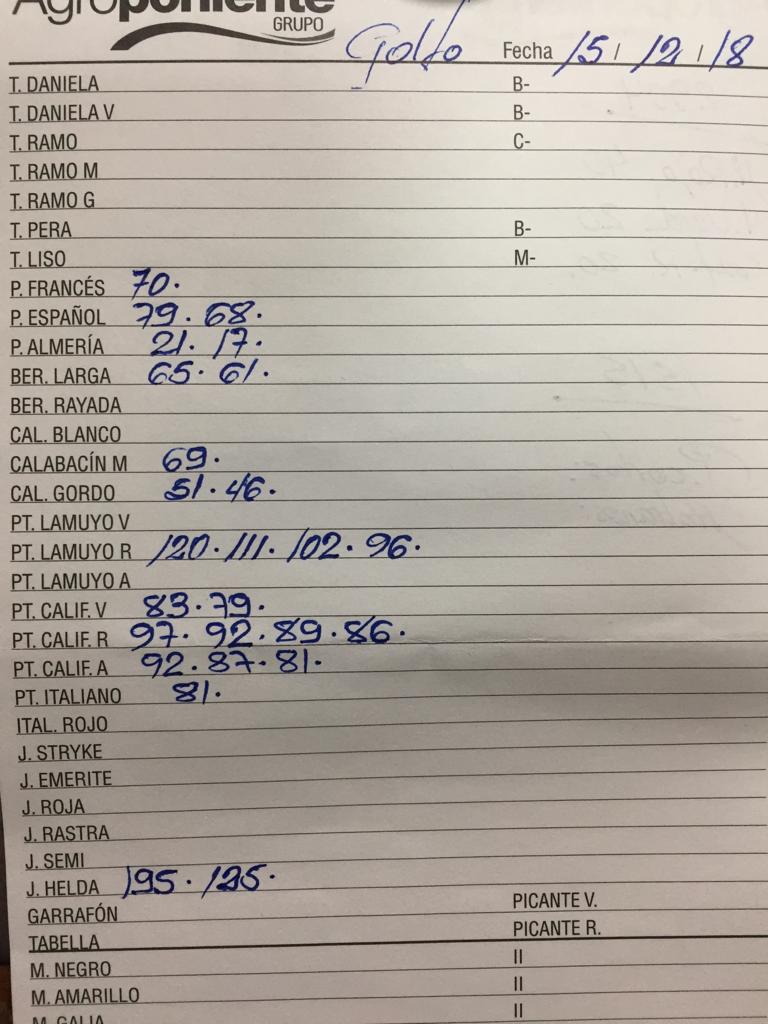 Agroponiente
GRUPO
Golfo Fecha 15 / 12 / 18
T. DANIELA B-
T. DANIELA V B-
T. RAMO C-
T. RAMO M
T. RAMO G
T. PERA B-
T. LISO M-
P. FRANCÉS 70.
P. ESPAÑOL 79. 68.
P. ALMERÍA 21. 17.
BER. LARGA 65. 61.
BER. RAYADA
CAL. BLANCO
CALABACÍN M 69.
CAL. GORDO 51. 46.
PT. LAMUYO V
PT. LAMUYO R 120. 111. 102. 96.
PT. LAMUYO A
PT. CALIF. V 83. 79.
PT. CALIF. R 97. 92. 89. 86.
PT. CALIF. A 92. 87. 81.
PT. ITALIANO 81.
ITAL. ROJO
J. STRYKE
J. EMERITE
J. ROJA
J. RASTRA
J. SEMI
J. HELDA 195. 125.
GARRAFÓN PICANTE V.
TABELLA PICANTE R.
M. NEGRO II
M. AMARILLO II
M. GALIA II